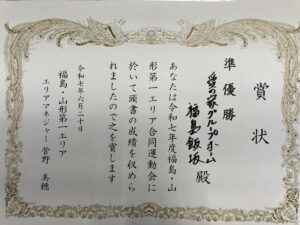 賞状
準優勝
愛の家グループホーム
福島飯坂 殿
あなたは令和七年度福島・山
形第一エリア合同運動会に
於いて頭書の成績を収めら
れましたので之を賞します
令和七年六月二十日
福島・山形第一エリア
エリアマネジャー 菅野 美穂